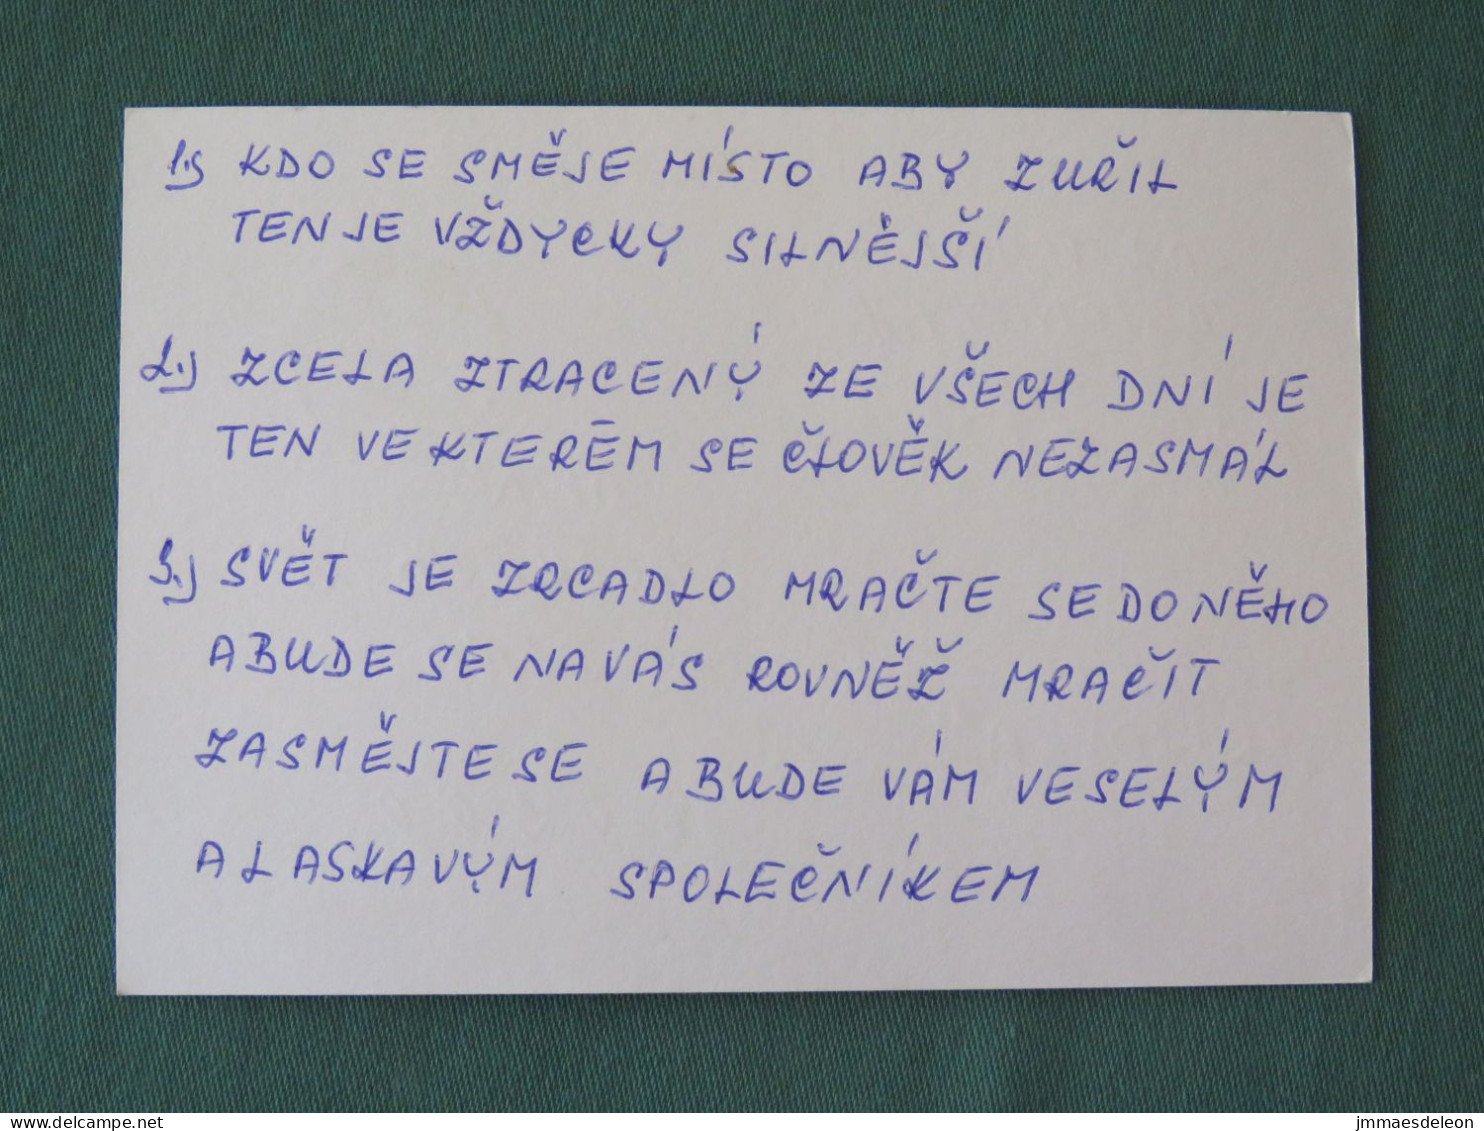 1.) KDO SE SMĚJE MÍSTO ABY ZUŘIL
TEN JE VŽDYCKY SILNĚJŠÍ
2.) ZCELA ZTRACENÝ ZE VŠECH DNÍ JE
TEN VE KTERÉM SE ČLOVĚK NEZASMÁL
3.) SVĚT JE ZRCADLO MRAČTE SE DO NĚHO
A BUDE SE NA VÁS ROVNĚŽ MRAČIT
ZASMĚJTE SE A BUDE VÁM VESELÝM
A LASKAVÝM SPOLEČNÍKEM
www.delcampe.net
jmmaesdeleon